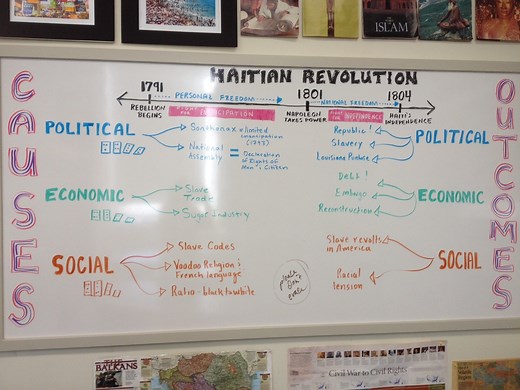 ISLAM
HAITIAN REVOLUTION
1791
PERSONAL FREEDOM
1801
NATIONAL FREEDOM
1804
REBELLION
BEGINS
FIGHT FOR EMANCIPATION
NAPOLEON
TAKES POWER
FIGHT FOR INDEPENDENCE
HAITI'S
INDEPENDENCE
CAUSES
POLITICAL
Sonthonax = limited
emancipation
(1793)
National
Assembly
= Declaration
of Rights of
Man & Citizen
ECONOMIC
Slave
Trade
Sugar Industry
SOCIAL
Slave Codes
Voodoo Religion &
French language
Ratio-black to white
please
don't
erase
Republic!
Slavery
Louisiana Purchase
POLITICAL
Debt!
Embargo
Reconstruction
ECONOMIC
Slave revolts
in America
Racial
tension
SOCIAL
OUTCOMES
THE
BALKANS
Civil War to Civil Rights